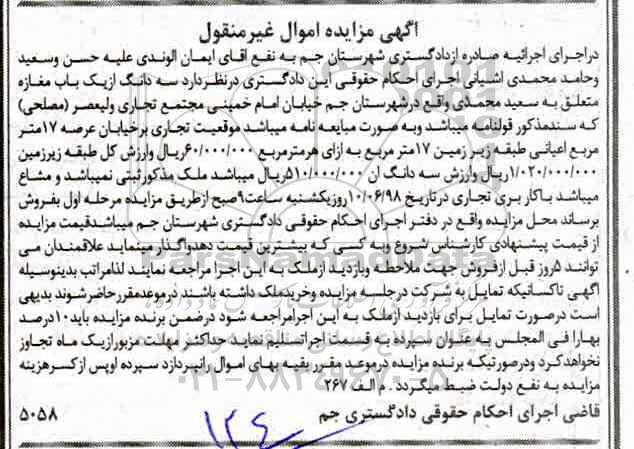 آگهی مزایده اموال غیرمنقول
دراجرای اجرائیه صادره ازدادگستری شهرستان جم به نفع اقای ایمان الوندی علیه حسن وسعید
وحامد محمدی اشیانی اجرای احکام حقوقی این دادگستری درنظردارد سه دانگ ازیک باب مغازه
متعلق به سعید محمدی واقع درشهرستان جم خیابان امام خمینی مجتمع تجاری ولیعصر (مصلحی)
که سندمذکور قولنامه میباشد وبه صورت مبایعه نامه میباشد موقعیت تجاری برخیابان عرصه ۱۷متر
مربع اعیانی طبقه زیر زمین ۱۷متر مربع به ازای هرمترمربع ۶۰/۰۰۰/۰۰۰ریال وارزش کل طبقه زیرزمین
۱/۰۲۰/۰۰۰/۰۰۰ریال وارزش سه دانگ ان ۵۱۰/۰۰۰/۰۰۰ریال میباشد ملک مذکورثبتی نمیباشد و مشاع
میباشد باکار بری تجاری درتاریخ ۱۰/۰۶/۹۸روزیکشنبه ساعت۹صبح ازطریق مزایده مرحله اول بفروش
برساند محل مزایده واقع در دفتر اجرای احکام حقوقی دادگستری شهرستان جم میباشدقیمت مزایده
از قیمت پیشنهادی کارشناس شروع وبه کسی که بیشترین قیمت دهدواگذارمینماید علاقمندان می
توانند ۵روز قبل ازفروش جهت ملاحظه وبازدید ازملک به این اجرا مراجعه نمایند لذامراتب بدینوسیله
آگهی تاکسانیکه تمایل به شرکت درجلسه مزایده وخریدملک داشته باشند درموعدمقررحاضرشوند بدیهی
است درصورت تمایل برای بازدید ازملک به این اجرامراجعه شود درضمن برنده مزایده باید۱۰درصد
بهارا فی المجلس به عنوان سپرده به قسمت اجراتسلیم نماید حداکثر مهلت مزبورازیک ماه تجاوز
نخواهدکرد ودرصورتیکه برنده مزایده درموعد مقرر بقیه بهای اموال رانپردازد سپرده اوپس ازکسرهزینه
مزایده به نفع دولت ضبط میگردد . م الف ۲۶۷
قاضی اجرای احکام حقوقی دادگستری جم
۵۰۵۸
۱۲۴
ParsNamadData